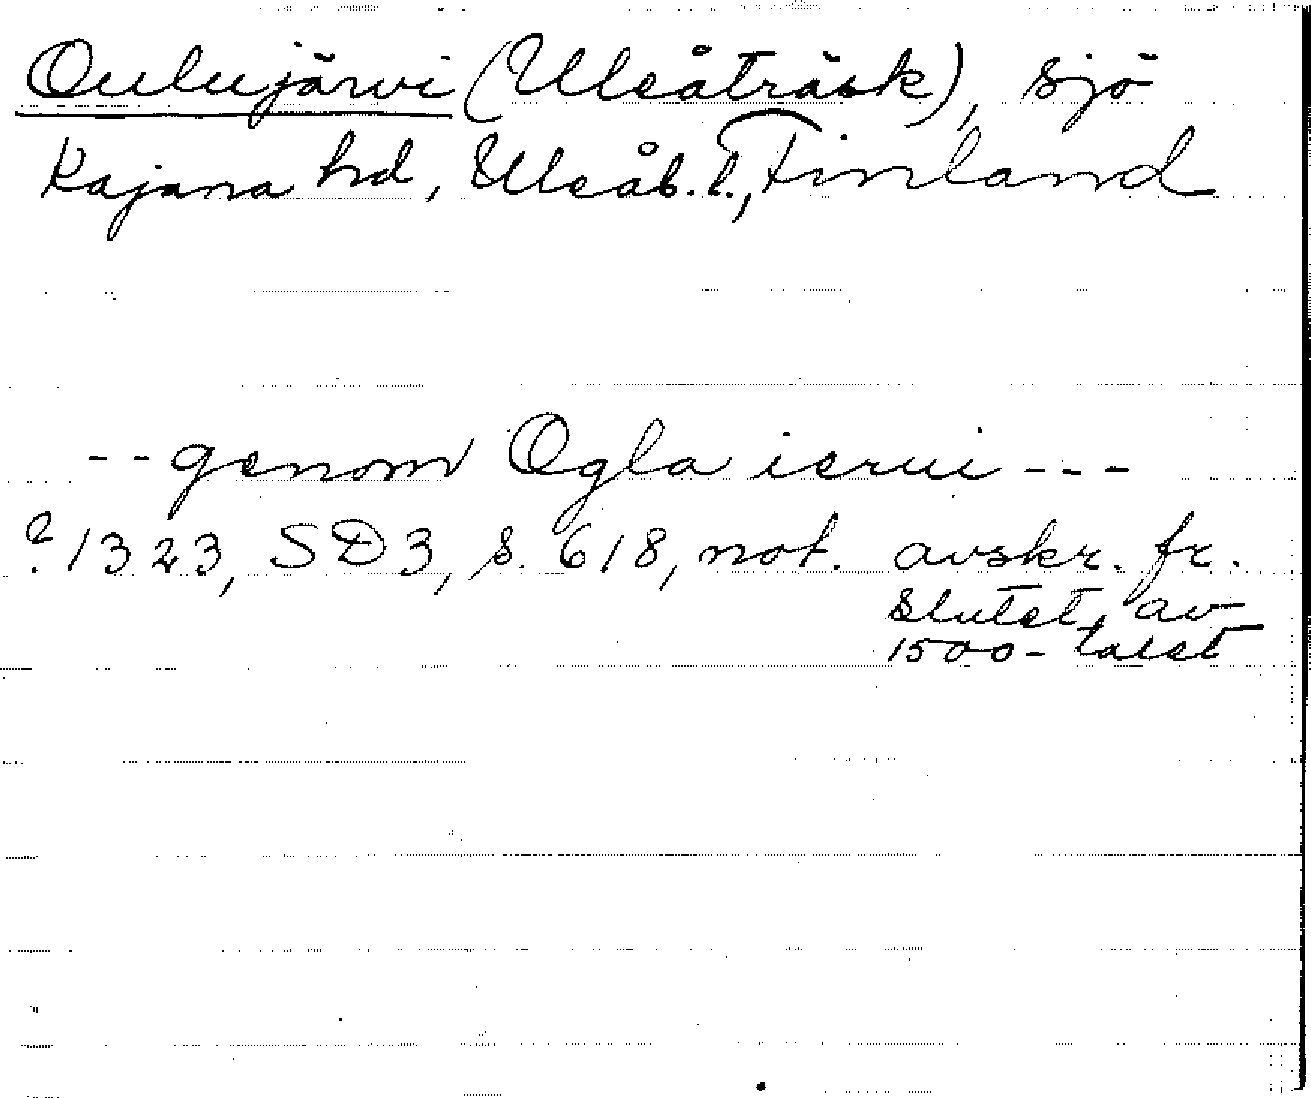 Oulujärvi (Uleåträsk), sjö
Kajana hd, Uleåb. l., Finland
-- genom Ogla ierui ---
? 1323, SD3, s. 618, not. avskr. fr.
slutet av
1500-talet